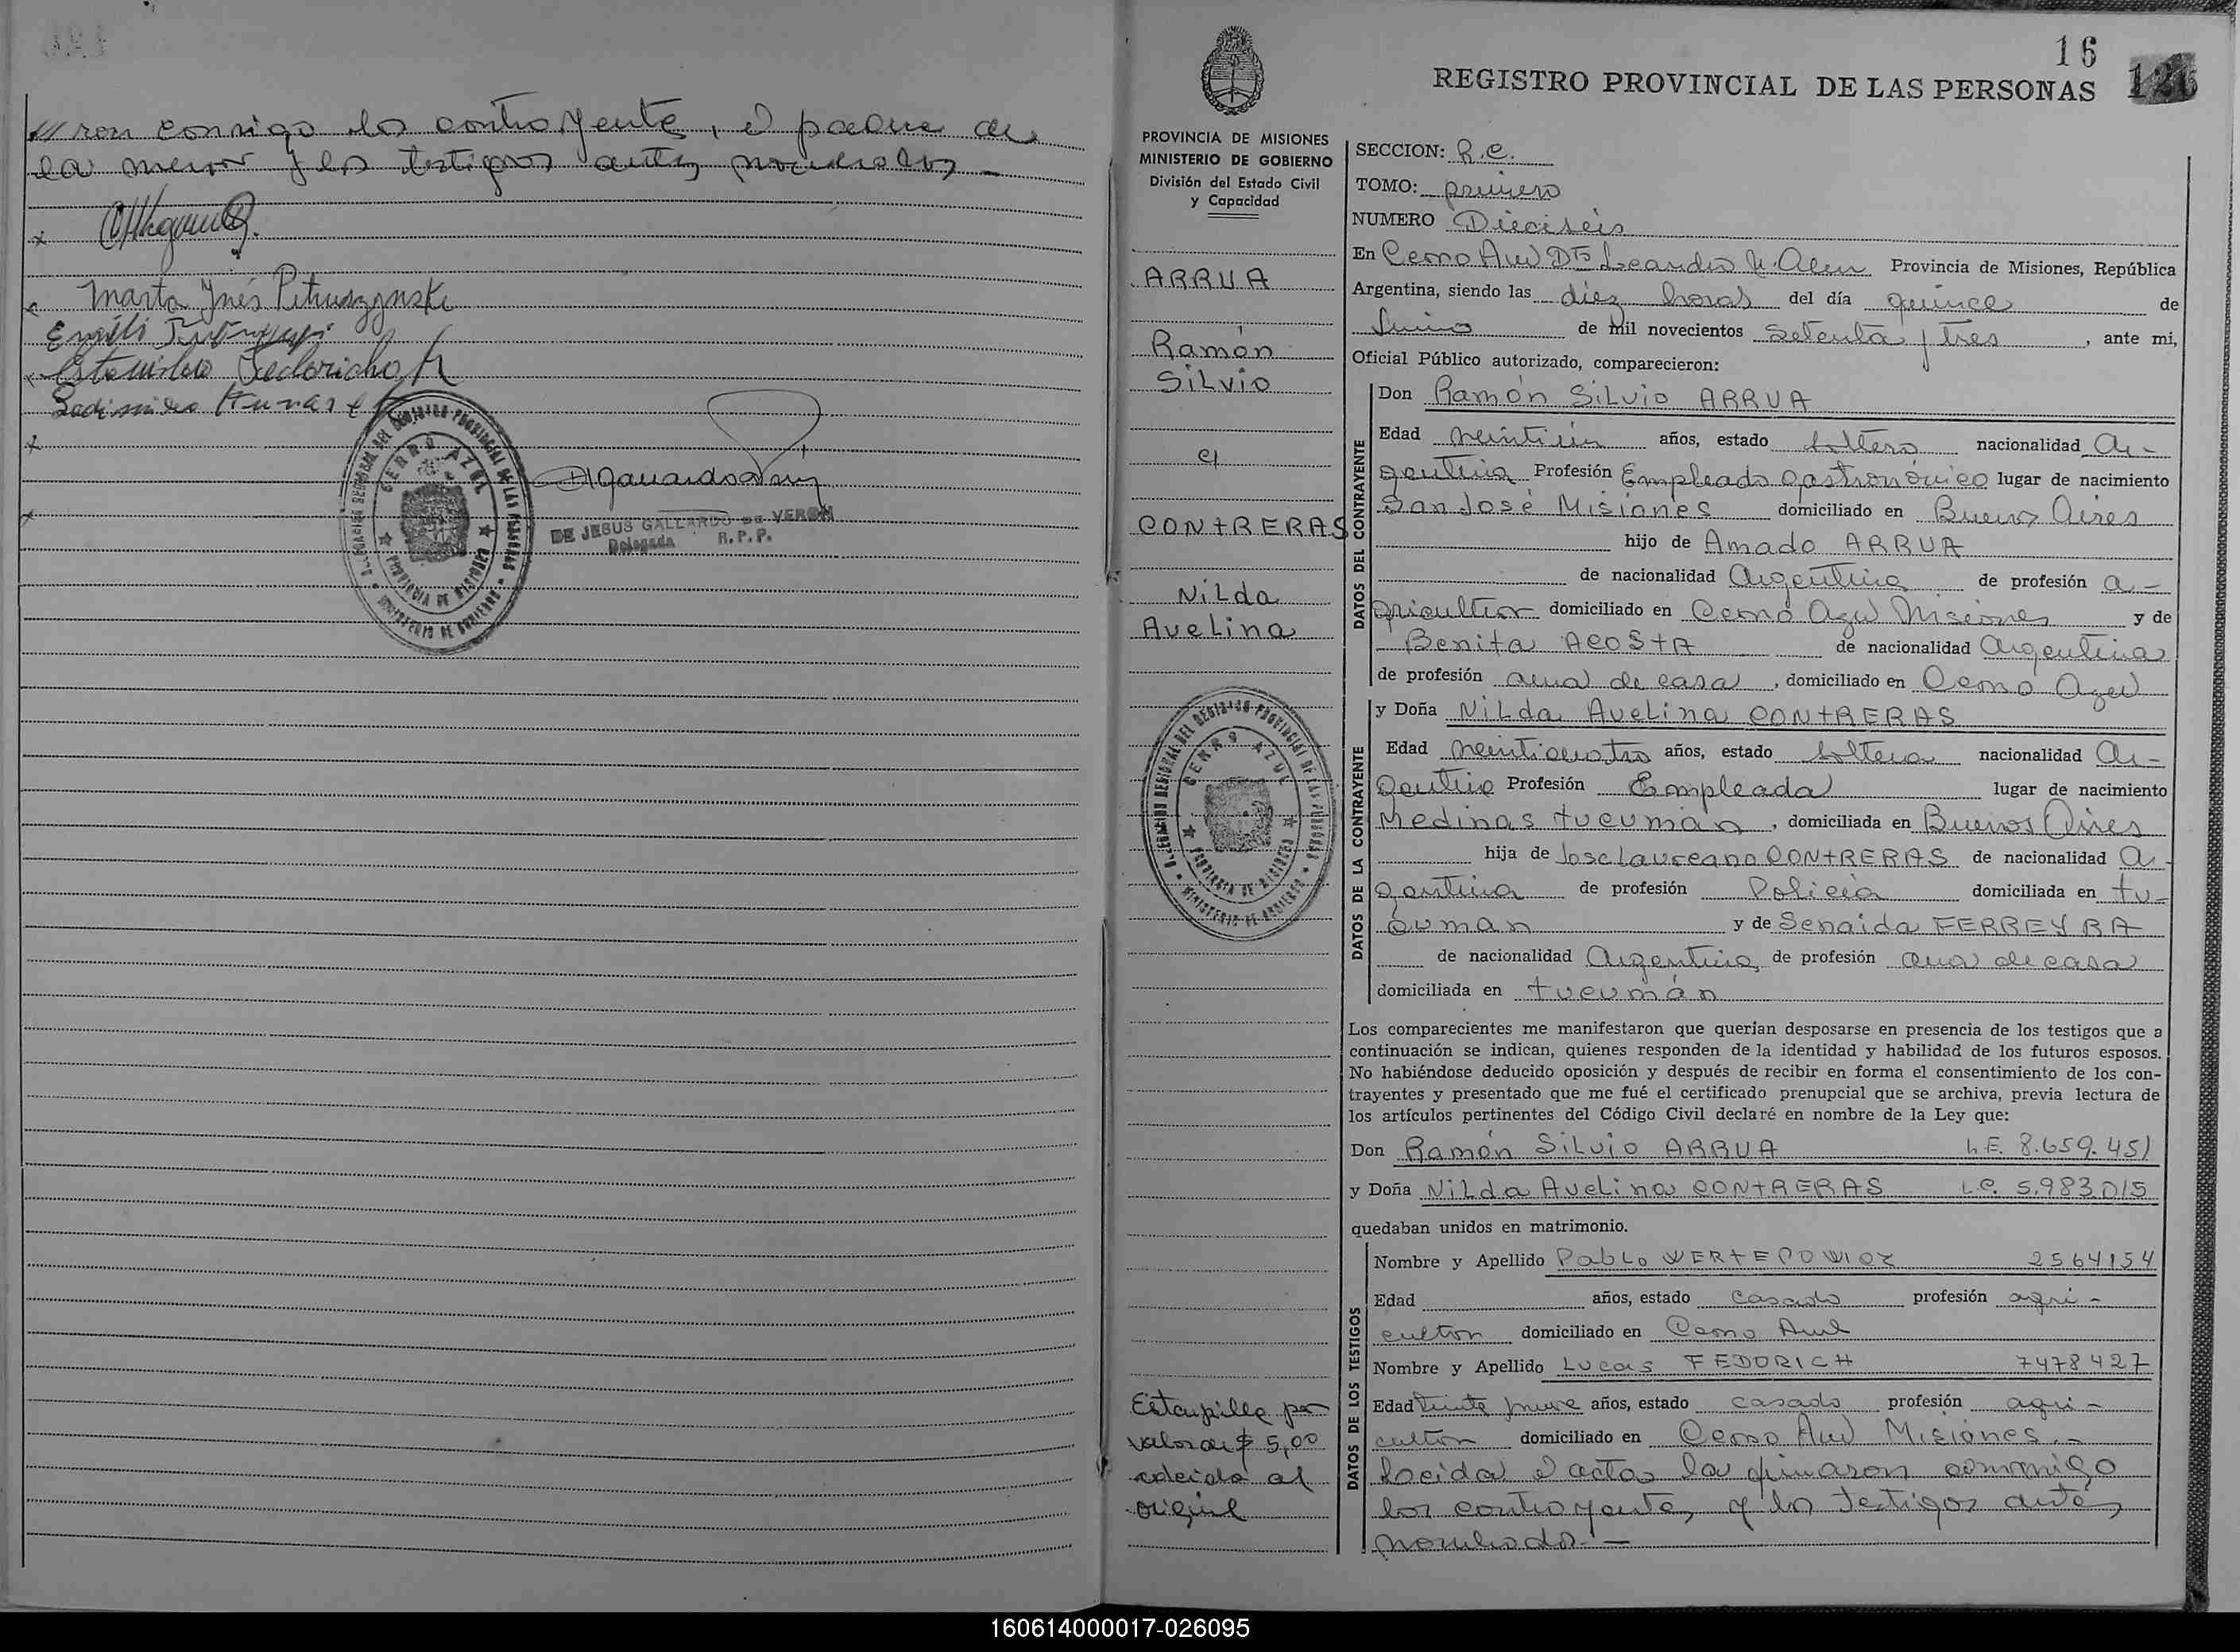 //ron consigo los contrayente, el padre de
la menor y los testigos antes nombrados -
x
x Marta Inés Petruszynski
Estanislao Fedorichoh
x
x
CERRO AZUL
PROVINCIA DE MISIONES
MINISTERIO DE GOBIERNO
DE JESUS GALLARDO DE VERON
Delegada R.P.P.
16
REGISTRO PROVINCIAL DE LAS PERSONAS
PROVINCIA DE MISIONES
MINISTERIO DE GOBIERNO
División del Estado Civil
y Capacidad
ARRUA
Ramón
Silvio
c/
CONTRERAS
Nilda
Avelina
DELEGACION REGIONAL DEL REGISTRO PROVINCIAL DE LAS PERSONAS
CERRO AZUL
PROVINCIA DE MISIONES
MINISTERIO DE GOBIERNO
Estampilla por
valor de $ 5,00
colocida al
original
SECCION: R.C.
TOMO: primero
NUMERO Dieciseis
En Cerro Azul Dto Leandro N. Alem Provincia de Misiones, República
Argentina, siendo las diez horas del día quince de
Junio de mil novecientos setenta y tres, ante mi,
Oficial Público autorizado, comparecieron:
DATOS DEL CONTRAYENTE
Don Ramón Silvio ARRUA
Edad años, estado soltero nacionalidad Ar-
gentina Profesión Empleado Gastronómico lugar de nacimiento
San José Misiones domiciliado en Buenos Aires
hijo de Amado ARRUA
de nacionalidad Argentina de profesión a-
gricultor domiciliado en Cerro Azul Misiones y de
Benita ACOSTA de nacionalidad Argentina
de profesión ama de casa, domiciliado en Cerro Azul
DATOS DE LA CONTRAYENTE
y Doña Nilda Avelina CONTRERAS
Edad veinticuatro años, estado soltera nacionalidad Ar-
gentina Profesión Empleada lugar de nacimiento
Medinas Tucumán, domiciliada en Buenos Aires
hija de Jose Laureano CONTRERAS de nacionalidad Ar-
gentina de profesión Policia domiciliada en Tu-
cuman y de Senaida FERREYRA
de nacionalidad Argentina, de profesión ama de casa
domiciliada en Tucumán
Los comparecientes me manifestaron que querían desposarse en presencia de los testigos que a
continuación se indican, quienes responden de la identidad y habilidad de los futuros esposos.
No habiéndose deducido oposición y después de recibir en forma el consentimiento de los con-
trayentes y presentado que me fué el certificado prenupcial que se archiva, previa lectura de
los artículos pertinentes del Código Civil declaré en nombre de la Ley que:
Don Ramón Silvio ARRUA L.E. 8.659.451
y Doña Nilda Avelina CONTRERAS L.C. 5.983.015
quedaban unidos en matrimonio.
DATOS DE LOS TESTIGOS
Nombre y Apellido Pablo WERTEPOWICZ 2564154
Edad años, estado casado profesión agri-
cultor domiciliado en Cerro Azul
Nombre y Apellido Lucas FEDORICH 7478427
Edad treinta y nueve años, estado casado profesión agri-
cultor domiciliado en Cerro Azul Misiones.-
Leída el acta la firmaron conmigo
los contrayentes y los testigos antes
nombrados. -
160614000017-026095